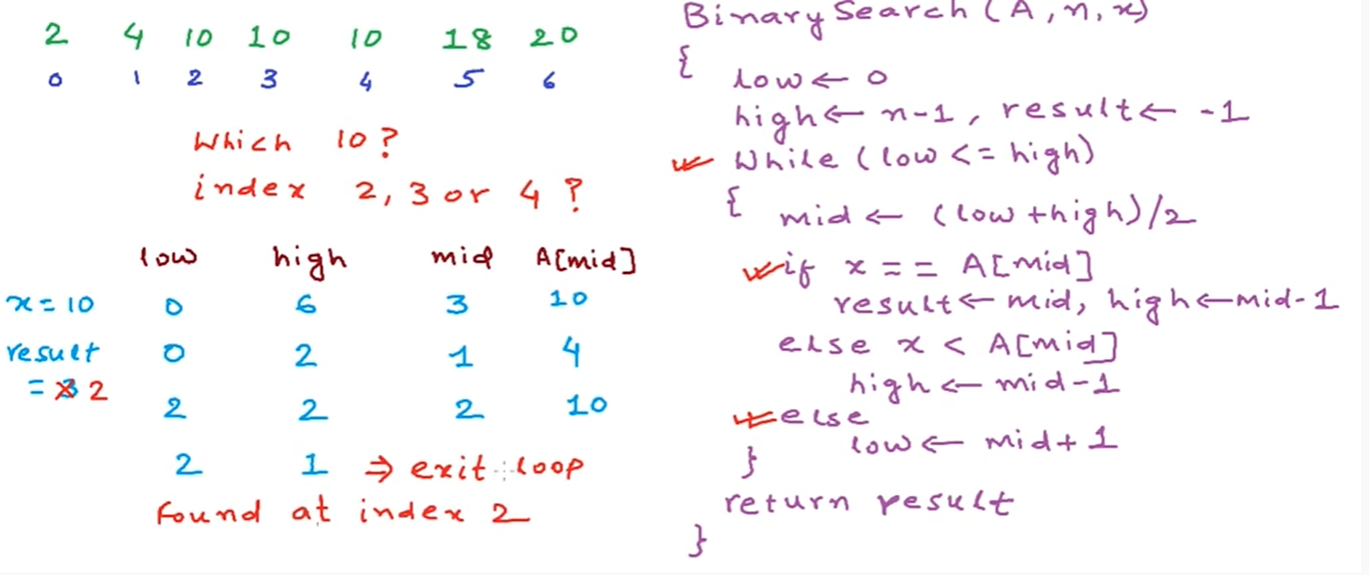 2 4 10 10 10 18 20
0 1 2 3 4 5 6
Which 10?
index 2, 3 or 4 ?
low high mid A[mid]
x = 10 0 6 3 10
result 0 2 1 4
= 3 2
2 2 2 10
2 1 ⇒ exit loop
Found at index 2
Binary Search (A, n, x)
{
low ← 0
high ← n-1, result ← -1
While (low <= high)
{ mid ← (low + high)/2
if x == A[mid]
result ← mid, high ← mid-1
else x < A[mid]
high ← mid-1
else
low ← mid+1
}
return result
}